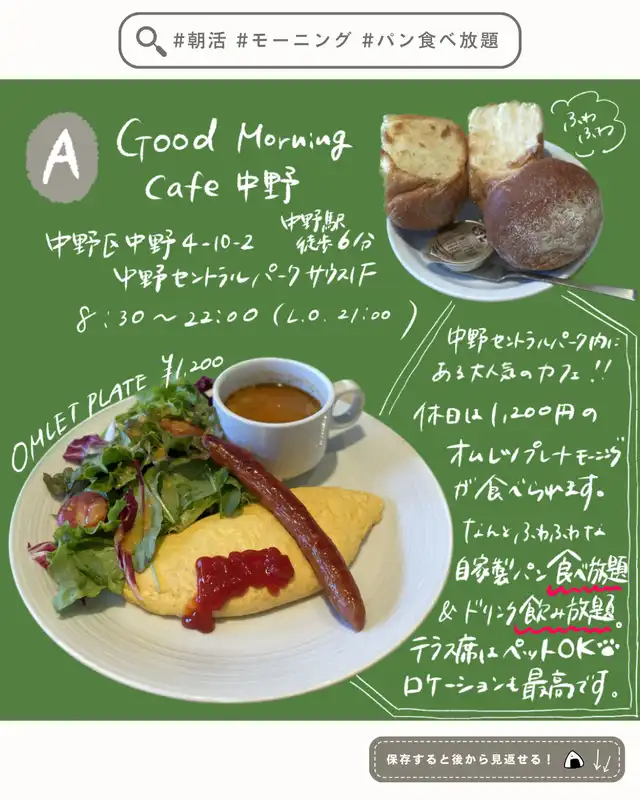 #朝活 #モーニング #パン食べ放題
A
Good Morning
Cafe 中野
中野区中野4-10-2
中野駅
徒歩6分
中野セントラルパークサウス1F
8:30〜22:00 (L.O. 21:00)
ふわ
ふわ
OMLET PLATE ¥1,200
中野セントラルパーク内に
ある大人気のカフェ!!
休日は1,200円の
オムレツプレートモーニング
が食べられます。
なんと、ふわふわな
自家製パン食べ放題
&ドリンク飲み放題。
テラス席はペットOK
ロケーションも最高です。
保存すると後から見返せる!